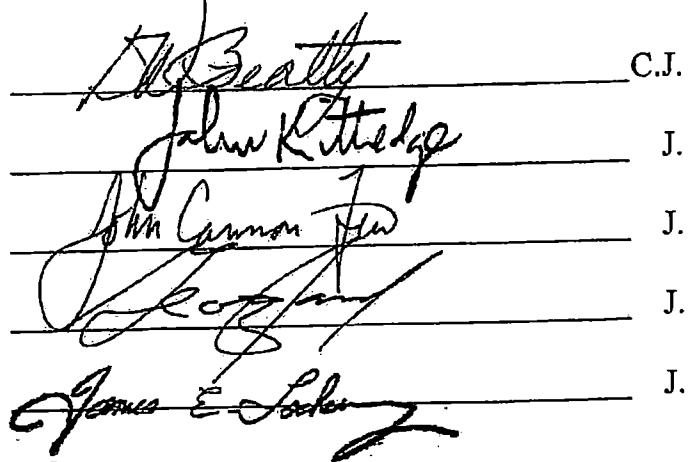 DWBeatty C.J.
John Kittredge J.
John Cannon Few J.
J.
James E. Lockemy J.